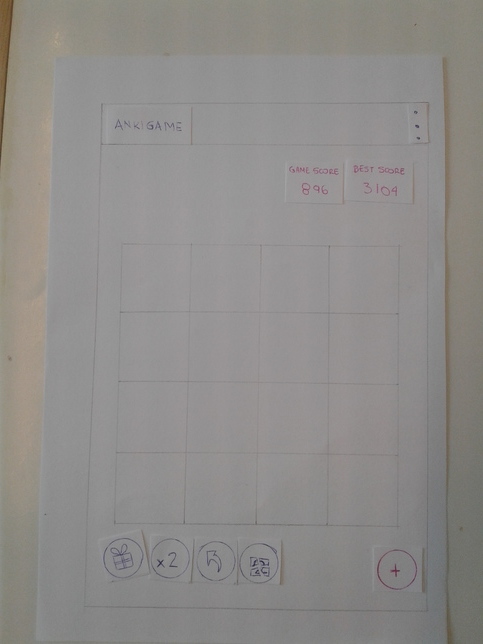 ANKGAME
GAME SCORE
896
BEST SCORE
3109
x2
+